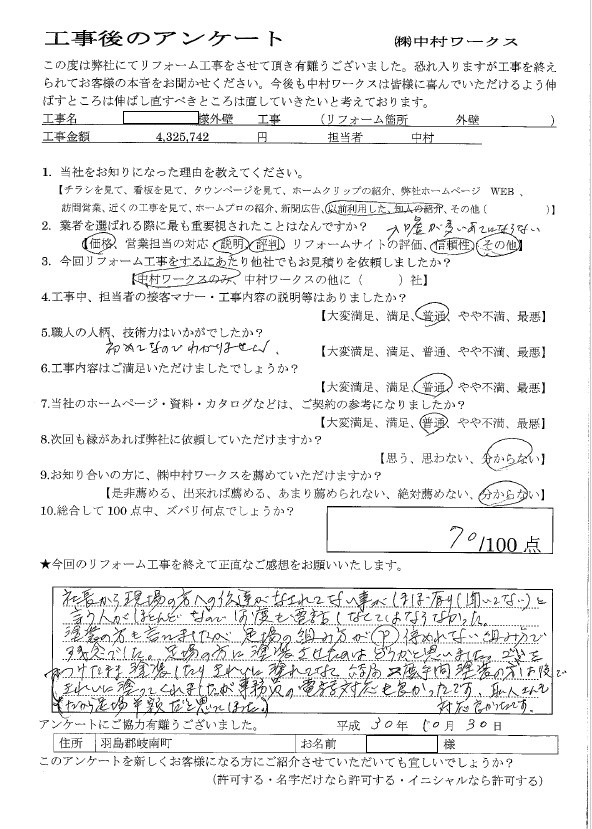 工事後のアンケート ㈱中村ワークス
この度は弊社にてリフォーム工事をさせて頂き有難うございました。恐れ入りますが工事を終え
られてお客様の本音をお聞かせください。今後も中村ワークスは皆様に喜んでいただけるよう伸
ばすところは伸ばし直すべきところは直していきたいと考えております。
工事名 様外壁 工事 (リフォーム箇所 外壁 )
工事金額 4,325,742 円 担当者 中村
1. 当社をお知りになった理由を教えてください。
【チラシを見て、看板を見て、タウンページを見て、ホームクリップの紹介、弊社ホームページ WEB、
訪問営業、近くの工事を見て、ホームプロの紹介、新聞広告、以前利用した、知人の紹介、その他( )】
2. 業者を選ばれる際に最も重要視されたことはなんですか?
【価格、営業担当の対応、説明、評判、リフォームサイトの評価、信頼性、その他】
3. 今回リフォーム工事をするにあたり他社でもお見積りを依頼しましたか?
【中村ワークスのみ、中村ワークスの他に( )社】
4.工事中、担当者の接客マナー・工事内容の説明等はありましたか?
【大変満足、満足、普通、やや不満、最悪】
5.職人の人柄、技術力はいかがでしたか?
初めてなのでわかりません、 【大変満足、満足、普通、やや不満、最悪】
6.工事内容はご満足いただけましたでしょうか?
【大変満足、満足、普通、やや不満、最悪】
7.当社のホームページ・資料・カタログなどは、ご契約の参考になりましたか?
【大変満足、満足、普通、やや不満、最悪】
8.次回も縁があれば弊社に依頼していただけますか?
【思う、思わない、分からない】
9.お知り合いの方に、㈱中村ワークスを薦めていただけますか?
【是非薦める、出来れば薦める、あまり薦められない、絶対薦めない、分からない】
10.総合して 100 点中、ズバリ何点でしょうか?
70/100 点
★今回のリフォーム工事を終えて正直なご感想をお願いいたします。
社長から現場の方への伝達がなされてない事が(ほぼ有り(聞いてない)と
言う人がほとんど なので 何度も電話しなくてはならなかった。
塗装の方も言ってましたが 足場の組み方が 組み方で
残念でした。足場の方に塗装させたのはどうかと思いました。
塗装したり きれいに塗れてなく 結局 二度手間 塗装の方は後で
きれいに塗ってくれましたが 事務の電話対応も良かったです。職人さんも
だから足場半額だと思ってしまった。 対応良かったです。
アンケートにご協力有難うございました。 平成 30年 10月 30日
住所 羽島郡岐南町 お名前 様
このアンケートを新しくお客様になる方にご紹介させていただいても宜しいでしょうか?
(許可する・名字だけなら許可する・イニシャルなら許可する)